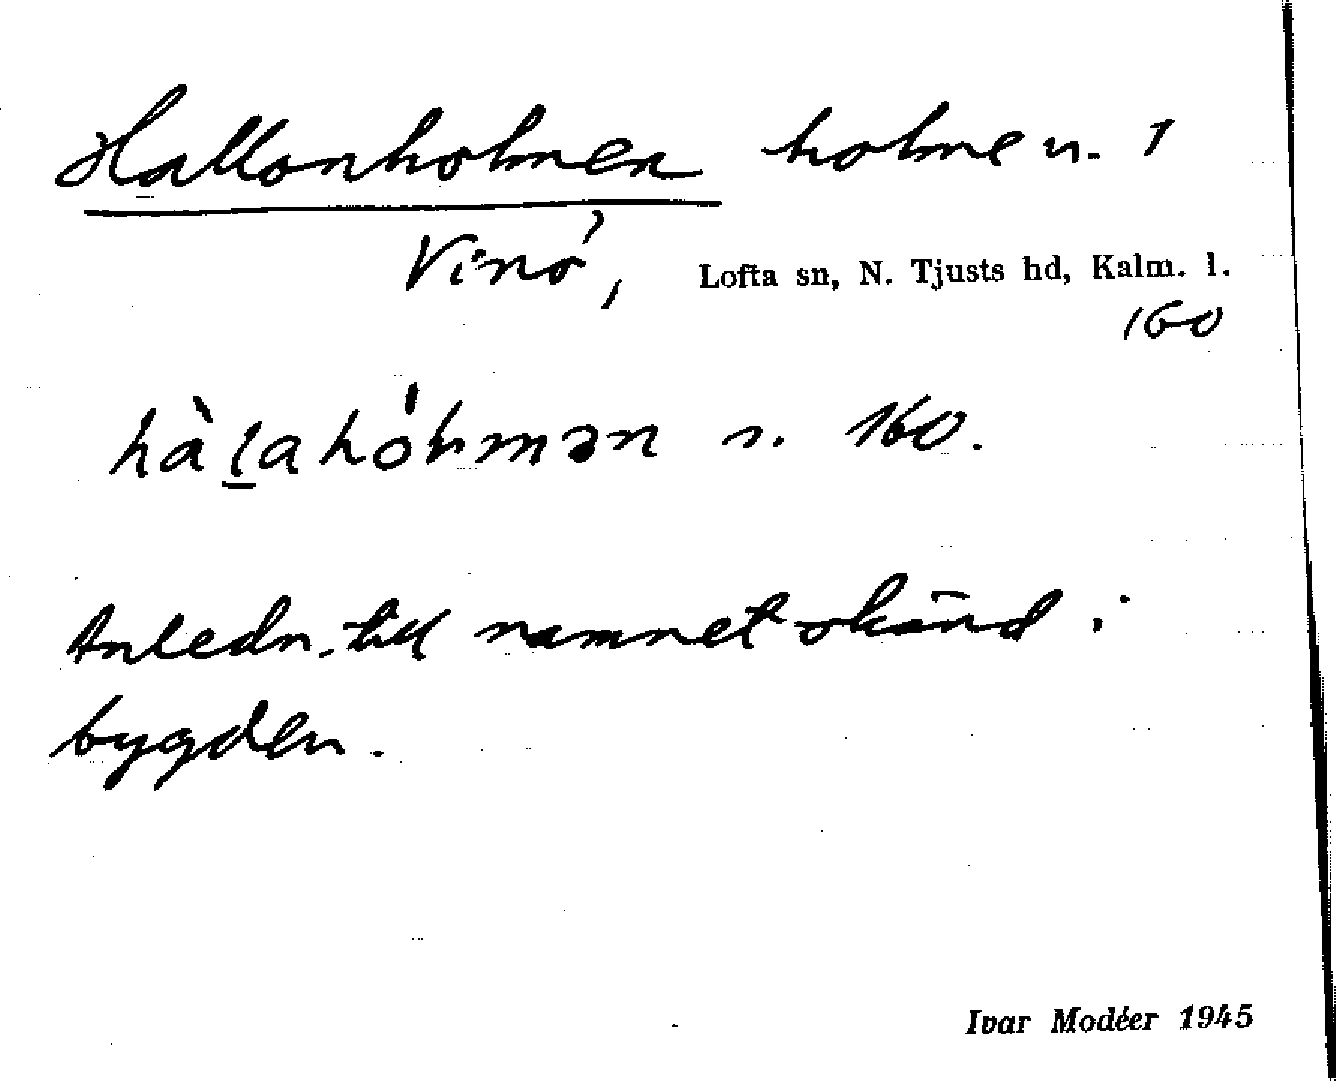 Hallonholmen holme u. 1
Vinö, Lofta sn, N. Tjusts hd, Kalm. l.
160
hàlahóhmən s. 160.
Anledn. till namnet okänd i
bygden.
Ivar Modéer 1945